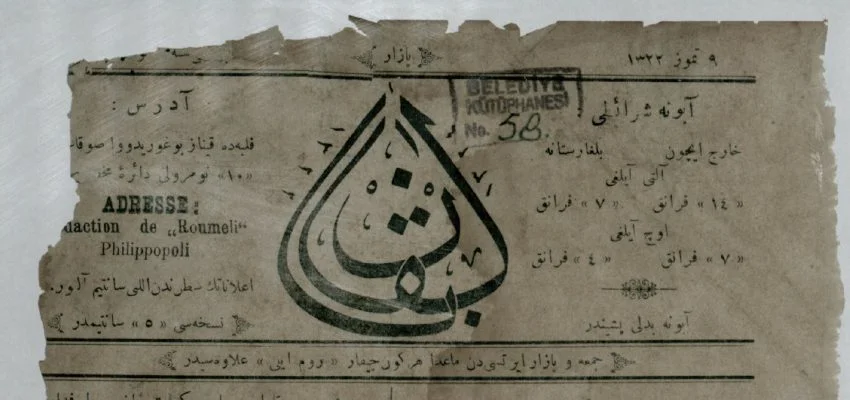 بازار
٩ تموز ١٣٢٢
BELEDİYE
KÜTÜPHANESİ
No. 58.
آبونه شرائطى :
خارج ايچون بلغارستانه
آلتى آيلغى
« ١٤ » فرانق « ٧ » فرانق
اوچ آيلغى
« ٧ » فرانق « ٤ » فرانق
آبونه بدلى پشيندر
آدرس :
فلبه‌ده قيناز بوغوريدى
« ١٠ » نومرولى دائرهٔ
ADRESSE:
daction de „Roumeli“
Philippopoli
اعلاناتك سطرندن اللى سانتيم آلور.
نسخه‌سى « ٥ » سانتيمدر
جمعه و بازار ايرتسى‌دن ماعدا هركون چيقار « روم ايلى » علاوه‌سيدر